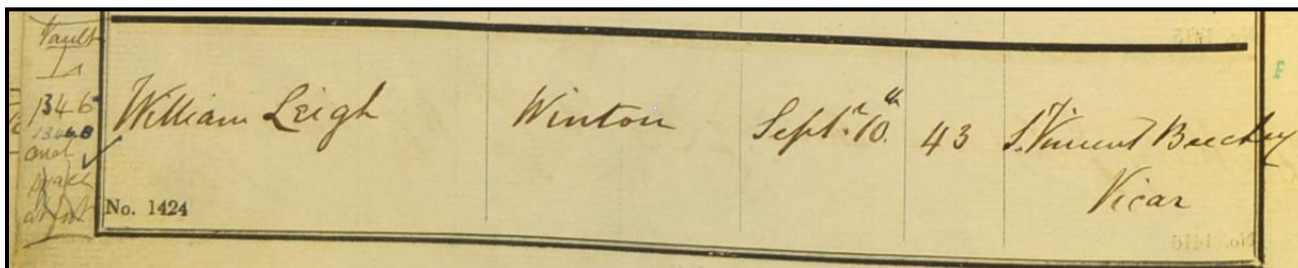 Vault
1346
1346B
and
space
at foot
William Leigh Winton Septr. 10th 43 St. Vincent Beechey
Vicar
No. 1424